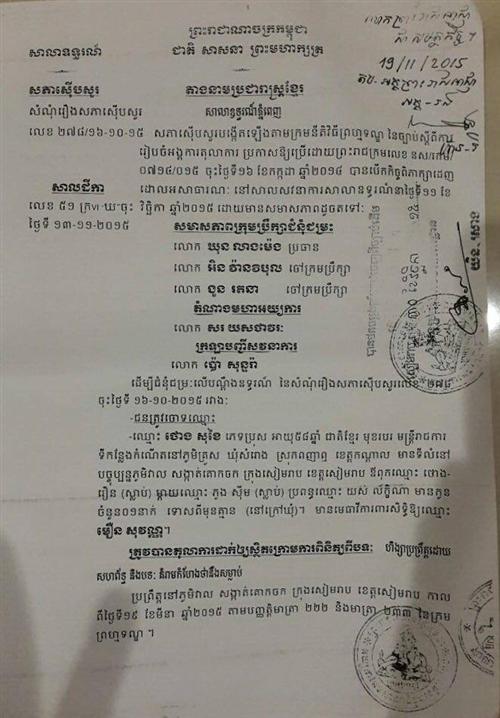 ព្រះរាជាណាចក្រកម្ពុជា
សាលាឧទ្ធរណ៍ ជាតិ សាសនា ព្រះមហាក្សត្រ
19/11/2015
សភាស៊ើបសួរ តាងនាមប្រជារាស្ត្រខ្មែរ
សំណុំរឿងសភាស៊ើបសួរ សាលាឧទ្ធរណ៍ភ្នំពេញ
លេខ ២៧៨/១៦-១០-១៥ សភាស៊ើបសួរបង្កើតឡើងតាមក្រមនីតិវិធីព្រហ្មទណ្ឌ នៃច្បាប់ស្តីពីការ
រៀបចំអង្គការតុលាការ ប្រកាសឱ្យប្រើដោយព្រះរាជក្រមលេខ នស/រកម/
០៧១៤/០១៥ ចុះថ្ងៃទី១៦ ខែកក្កដា ឆ្នាំ២០១៤ បានបើកកិច្ចពិភាក្សាដេញ
សាលដីកា ដោលអសាធារណៈ នៅសាលសវនាការសាលាឧទ្ធរណ៍នាថ្ងៃទី១១ ខែ
លេខ ៥១ ក្រVI-ឃ-ចុះ វិច្ឆិកា ឆ្នាំ២០១៥ ដោយមានសមាសភាពដូចតទៅ:
ថ្ងៃទី ១៣-១១-២០១៥
សមាសភាពក្រុមប្រឹក្សាជំនុំជម្រះ
លោក ឃុន លាងម៉េង ប្រធាន
លោក អិន វ៉ាន់វិបុល ចៅក្រមប្រឹក្សា
លោក ងួន រតនា ចៅក្រមប្រឹក្សា
តំណាងមហាអយ្យការ
លោក សរ យសថាវរៈ
ក្រឡាបញ្ជីសវនាការ
លោក ប៉ោ សុន្ទរ៉ា
ដើម្បីជំនុំជម្រះលើបណ្តឹងឧទ្ធរណ៍ នៃសំណុំរឿងសភាស៊ើបសួរលេខ ២៧៨
ចុះថ្ងៃទី ១៦-១០-២០១៥ រវាង:
-ជនត្រូវចោទឈ្មោះ
-ឈ្មោះ ថោង សុខៃ ភេទប្រុស អាយុ៥៨ឆ្នាំ ជាតិខ្មែរ មុខរបរ មន្ត្រីរាជការ
ទីកន្លែងកំណើតនៅភូមិគ្រួស ឃុំសំរោង ស្រុកពញាឮ ខេត្តកណ្តាល មានទីលំនៅ
បច្ចុប្បន្នភូមិវាល សង្កាត់គោកចក ក្រុងសៀមរាប ខេត្តសៀមរាប ឪពុកឈ្មោះ ថោង-
រឿន (ស្លាប់) ម្តាយឈ្មោះ ភួង ស៊ីម (ស្លាប់) ប្រពន្ធឈ្មោះ យស់ ល័ក្ខិណា មានកូន
ចំនួន០១នាក់ ទោសពីមុនគ្មាន (នៅក្រៅឃុំ)។ មានមេធាវីការពារសិទ្ធិឱ្យឈ្មោះ
មឿន សុវណ្ណ។
ត្រូវបានតុលាការដាក់ឲ្យស្ថិតក្រោមការពិនិត្យពីបទ: ហិង្សាប្រព្រឹត្តដោយ
សហព័ន្ធ និងបទ: គំរាមកំហែងថានឹងសម្លាប់
ប្រព្រឹត្តនៅភូមិវាល សង្កាត់គោកចក ក្រុងសៀមរាប ខេត្តសៀមរាប កាល
ពីថ្ងៃទី១៩ ខែមីនា ឆ្នាំ២០១៥ តាមបញ្ញត្តិមាត្រា ២២២ និងមាត្រា ២៣៣ នៃក្រម
ព្រហ្មទណ្ឌ ។